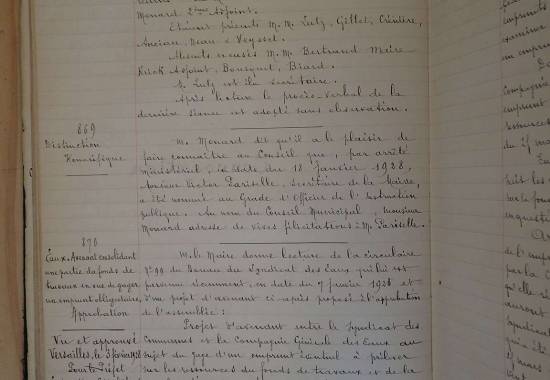 Monard, 2ème Adjoint.
Etaient présents M.M. Lutz, Gillet, Crénière,
Ancian, Meau & Veysset.
Absents excusés M.M. Bertrand Maire
Adjoint, Bousquet, Biard.
M. Lutz est élu secrétaire.
Après lecture le procès-verbal de la
dernière séance est adopté sans observation.
869
Distinction
Honorifique
M. Monard dit qu'il a le plaisir de
faire connaître au Conseil que, par arrêté
ministériel, en date du 18 Janvier 1928,
Monsieur Victor Pariselle, Secrétaire de la Mairie,
a été nommé au Grade d'Officier de l'Instruction
publique. Au nom du Conseil Municipal, Monsieur
Monard adresse de vives félicitations à M. Pariselle.
870
Eaux. Avenant
une partie du fonds de
travaux en vue de gager
un emprunt obligataire,
Approbation
M. le Maire donne lecture de la circulaire
N° 90 du Bureau du Syndicat des Eaux qui lui est
parvenue récemment, en date du 7 janvier 1928 et
d'un projet d'avenant ci-après proposé à l'approbation
de l'assemblée :
Projet d'avenant entre le Syndicat des
Communes et la Compagnie Générale des Eaux au
sujet du gage d'un emprunt éventuel à prélever
sur les ressources du fonds de travaux et de la
Vu et approuvé
Versailles, le 3 février 1928
Pour le Préfet